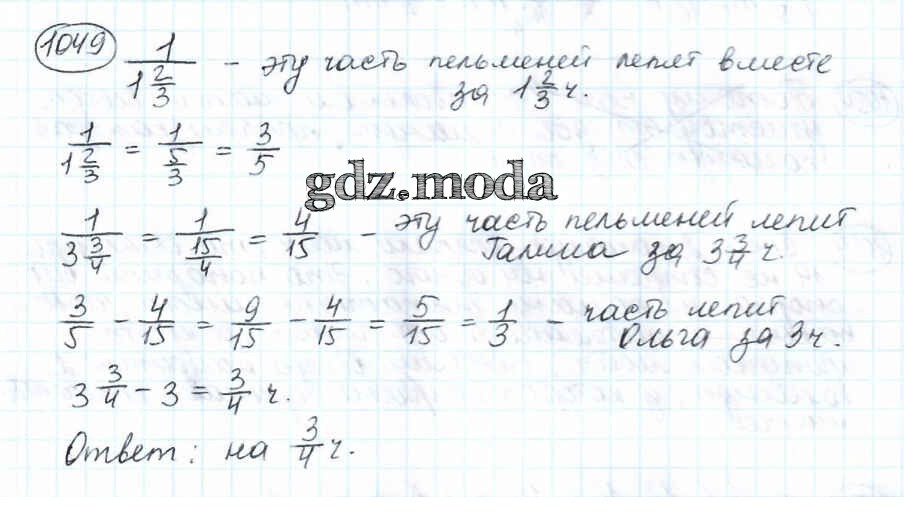 1049 1/(1 2/3) - эту часть пельменей лепят вместе
за 1 2/3 ч.
1/(1 2/3) = 1/(5/3) = 3/5
gdz.moda
1/(3 3/4) = 1/(15/4) = 4/15 - эту часть пельменей лепит
Галина за 3 3/4 ч.
3/5 - 4/15 = 9/15 - 4/15 = 5/15 = 1/3 - часть лепит
Ольга за 3 ч.
3 3/4 - 3 = 3/4 ч.
Ответ: на 3/4 ч.